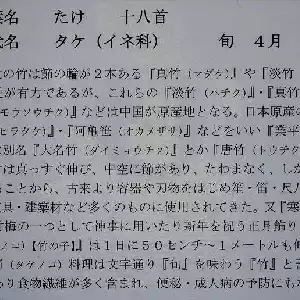 葉名 たけ 十八首
名 タケ（イネ科） 旬 ４月
の竹は節の輪が２本ある『真竹（マダケ）』や『淡竹
が有力であるが、これらの『淡竹（ハチク）』・『真竹
モウソウチク）』などは中国が原産地となる。日本原産の
チク）』・『阿亀笹（オカメザサ）』などをいい『業平
別名『大名竹（ダイミョウチク）』とか『唐竹（トウチク
は真っすぐ伸び、中空に節があり、たわまなく、しか
ることから、古来より容器や刃物をはじめ年・笛・尺八
具・建築材など多くのものに使用されてきた。又『寒
梅の一つとして神事に用いたり新年を祝う正月飾り
ノコ）【竹の子】』は１日に５０センチ～１メートルも伸
（タケノコ）料理は文字通り『旬』を味わう『竹』と言
り食物繊維が多く含まれ、便秘・成人病の予防にも